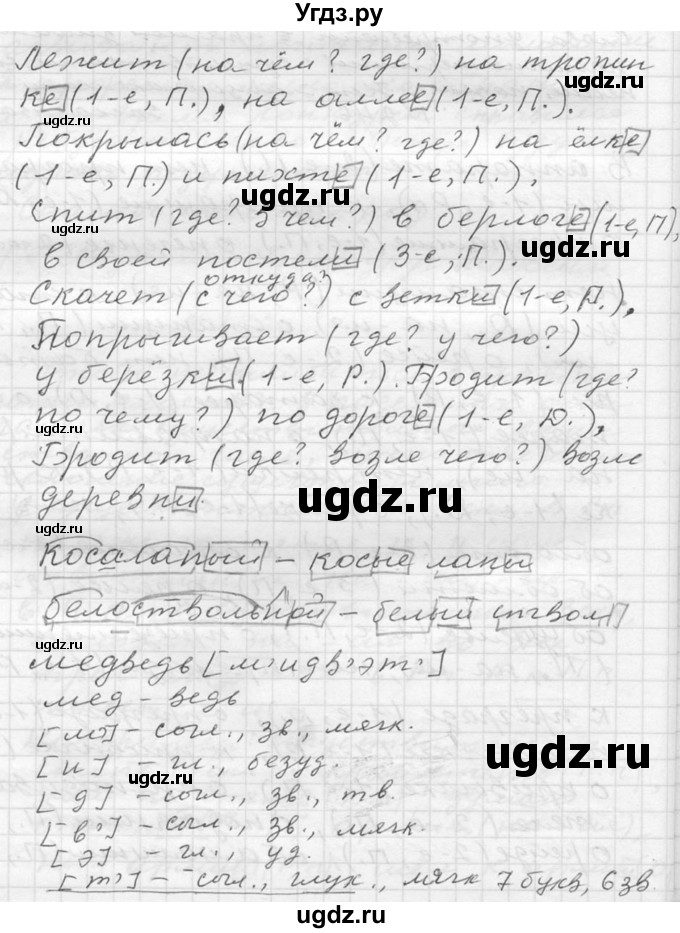 Угдз.ру
Лежит (на чём? где?) на тропин
ке (1-е, П.), на аллее (1-е, П.).
Покрылась (на чём? где?) на ёлке
(1-е, П.) и пихте (1-е, П.),
ugdz.ru
ugdz.ru
Спит (где? в чем?) в берлоге (1-е, П),
в своей постели (3-е, П.).
откуда?
Скачет (с чего?) с ветки (1-е, Д.),
ugdz.ru
Попрыгивает (где? у чего?)
у берёзки (1-е, Р.). Бродит (где?
ugdz.ru
по чему?) по дороге (1-е, Д.),
Бродит (где? возле чего?) возле
деревни.
ugdz.ru
ugdz.ru
косалапый – косые лапы
белоствольной – белый ствол
ugdz.ru
медведь [м'идв'эт']
мед - ведь
[м'] – согл., зв., мягк.
[и] – гл., безуд.
ugdz.ru
ugdz.ru
[д] – согл., зв., тв.
[в'] – согл., зв., мягк.
[э] – гл., уд.
[т'] – согл., глух., мягк 7 букв, 6 зв
ugdz.ru
ugdz.ru